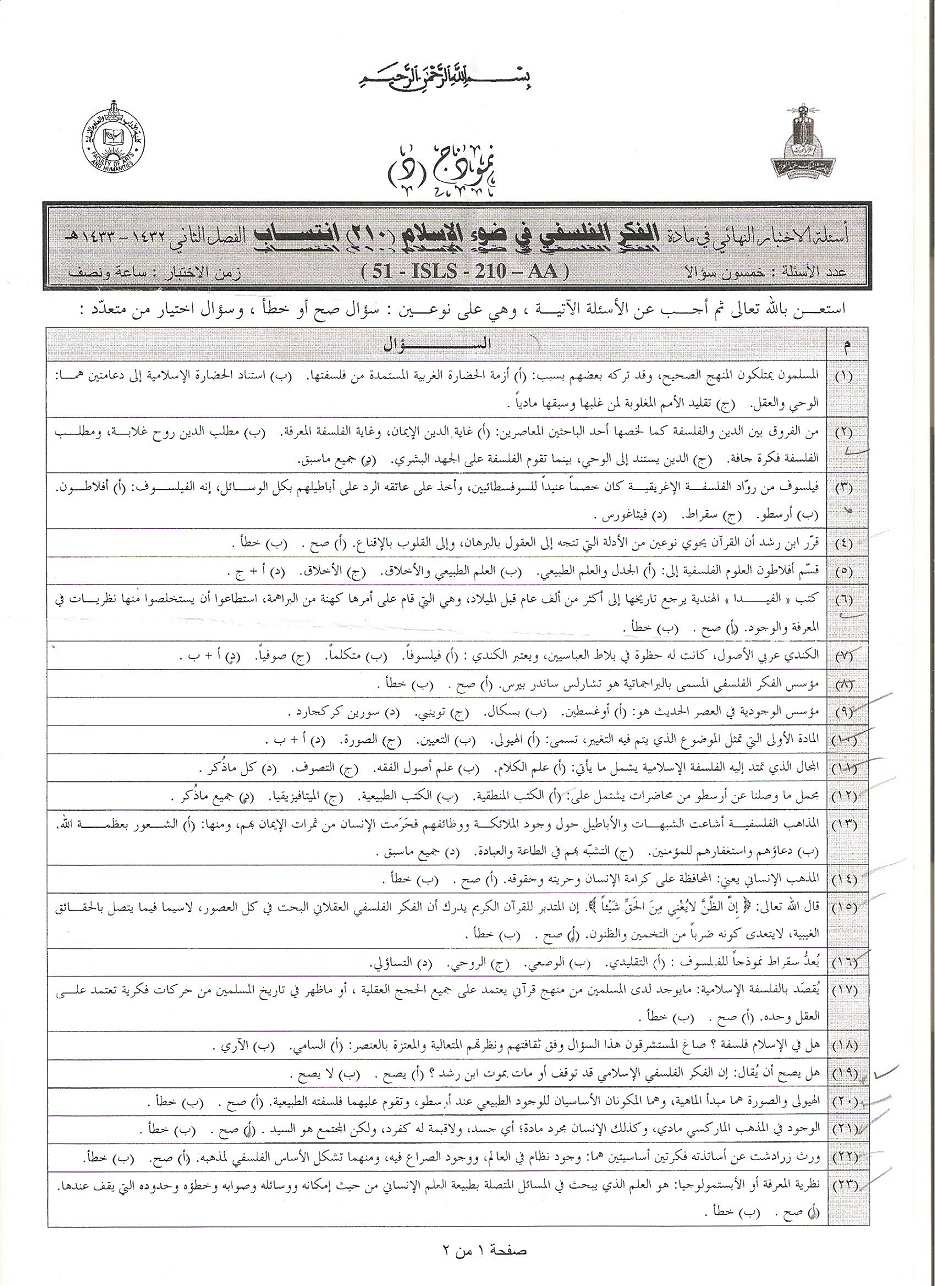 بسم الله الرحمن الرحيم
FACULTY OF ARTS AND HUMANITIES
نموذج (د)
أسئلة الاختبار النهائي في مادة الفكر الفلسفي في ضوء الإسلام (٢١٠) انتساب الفصل الثاني ١٤٣٢ – ١٤٣٣هـ
عدد الأسئلة : خمسون سؤالا (51 - ISLS - 210 – AA) زمن الاختبار : ساعة ونصف
استعن بالله تعالى ثم أجب عن الأسئلة الآتية ، وهي على نوعين : سؤال صح أو خطأ ، وسؤال اختيار من متعدّد :
م السؤال
(١) المسلمون يمتلكون المنهج الصحيح، وقد تركه بعضهم بسبب: (أ) أزمة الحضارة الغربية المستمدة من فلسفتها. (ب) استناد الحضارة الإسلامية إلى دعامتين هما:
الوحي والعقل. (ج) تقليد الأمم المغلوبة لمن غلبها وسبقها مادياً .
(٢) من الفروق بين الدين والفلسفة كما لخصها أحد الباحثين المعاصرين: (أ) غاية الدين الإيمان، وغاية الفلسفة المعرفة. (ب) مطلب الدين روح غلابة، ومطلب
الفلسفة فكرة جافة. (ج) الدين يستند إلى الوحي، بينما تقوم الفلسفة على الجهد البشري. (د) جميع ماسبق.
(٣) فيلسوف من روّاد الفلسفة الإغريقية كان خصماً عنيداً للسوفسطائيين، وأخذ على عاتقه الرد على أباطيلهم بكل الوسائل، إنه الفيلسوف: (أ) أفلاطون.
(ب) أرسطو. (ج) سقراط. (د) فيثاغورس .
(٤) قرّر ابن رشد أن القرآن يحوي نوعين من الأدلة التي تتجه إلى العقول بالبرهان، وإلى القلوب بالإقناع. (أ) صح . (ب) خطأ .
(٥) قسّم أفلاطون العلوم الفلسفية إلى: (أ) الجدل والعلم الطبيعي. (ب) العلم الطبيعي والأخلاق. (ج) الأخلاق. (د) أ + ج .
(٦) كتب « الفيدا » الهندية يرجع تاريخها إلى أكثر من ألف عام قبل الميلاد، وهي التي قام على أمرها كهنة من البراهمة، استطاعوا أن يستخلصوا منها نظريات في
المعرفة والوجود. (أ) صح . (ب) خطأ .
(٧) الكندي عربي الأصول، كانت له حظوة في بلاط العباسيين، ويعتبر الكندي : (أ) فيلسوفاً. (ب) متكلماً. (ج) صوفياً. (د) أ + ب .
(٨) مؤسس الفكر الفلسفي المسمى بالبراجماتية هو تشارلس ساندر بيرس. (أ) صح . (ب) خطأ .
(٩) مؤسس الوجودية في العصر الحديث هو: (أ) أوغسطين. (ب) بسكال. (ج) توينبي. (د) سورين كركجارد .
(١٠) المادة الأولى التي تمثل الموضوع الذي يتم فيه التغيير، تسمى: (أ) الهيولى. (ب) التعيين. (ج) الصورة. (د) أ + ب .
(١١) المجال الذي تمتد إليه الفلسفة الإسلامية يشمل ما يأتي: (أ) علم الكلام. (ب) علم أصول الفقه. (ج) التصوف. (د) كل ماذُكر .
(١٢) مجمل ما وصلنا عن أرسطو من محاضرات يشتمل على: (أ) الكتب المنطقية. (ب) الكتب الطبيعية. (ج) الميتافيزيقيا. (د) جميع ماذُكر .
(١٣) المذاهب الفلسفية أشاعت الشبهات والأباطيل حول وجود الملائكة ووظائفهم فحَرَمت الإنسان من ثمرات الإيمان بهم، ومنها: (أ) الشعور بعظمة الله.
(ب) دعاؤهم واستغفارهم للمؤمنين. (ج) التشبّه بهم في الطاعة والعبادة. (د) جميع ماسبق .
(١٤) المذهب الإنساني يعني: المحافظة على كرامة الإنسان وحريته وحقوقه. (أ) صح . (ب) خطأ .
(١٥) قال الله تعالى: ﴿ إِنَّ الظَّنَّ لايُغْنِي مِنَ الحَقِّ شَيْئاً ﴾. إن المتدبر للقرآن الكريم يدرك أن الفكر الفلسفي العقلاني البحت في كل العصور، لاسيما فيما يتصل بالحقائق
الغيبية، لايتعدى كونه ضرباً من التخمين والظنون. (أ) صح . (ب) خطأ .
(١٦) يُعدُّ سقراط نموذجاً للفيلسوف : (أ) التقليدي. (ب) الوضعي. (ج) الروحي. (د) التساؤلي.
(١٧) يُقصَد بالفلسفة الإسلامية: مايوجد لدى المسلمين من منهج قرآني يعتمد على جميع الحجج العقلية ، أو ماظهر في تاريخ المسلمين من حركات فكرية تعتمد على
العقل وحده. (أ) صح . (ب) خطأ .
(١٨) هل في الإسلام فلسفة ؟ صاغ المستشرقون هذا السؤال وفق ثقافتهم ونظرتهم المتعالية والمعتزة بالعنصر: (أ) السامي. (ب) الآري .
(١٩) هل يصح أن يُقال: إن الفكر الفلسفي الإسلامي قد توقف أو مات بموت ابن رشد ؟ (أ) يصح . (ب) لا يصح .
(٢٠) الهيولى والصورة هما مبدأ الماهية، وهما المكونان الأساسيان للوجود الطبيعي عند أرسطو، وتقوم عليهما فلسفته الطبيعية. (أ) صح . (ب) خطأ .
(٢١) الوجود في المذهب الماركسي مادي، وكذلك الإنسان مجرد مادة؛ أي جسد، ولاقيمة له كفرد، ولكن المجتمع هو السيد . (أ) صح . (ب) خطأ .
(٢٢) ورث زرادشت عن أساتذته فكرتين أساسيتين هما: وجود نظام في العالم، ووجود الصراع فيه، ومنهما تشكل الأساس الفلسفي لمذهبه. (أ) صح. (ب) خطأ.
(٢٣) نظرية المعرفة أو الأبستمولوجيا: هو العلم الذي يبحث في المسائل المتصلة بطبيعة العلم الإنساني من حيث إمكانه ووسائله وصوابه وخطؤه وحدوده التي يقف عندها.
(أ) صح . (ب) خطأ .
صفحة ١ من ٢